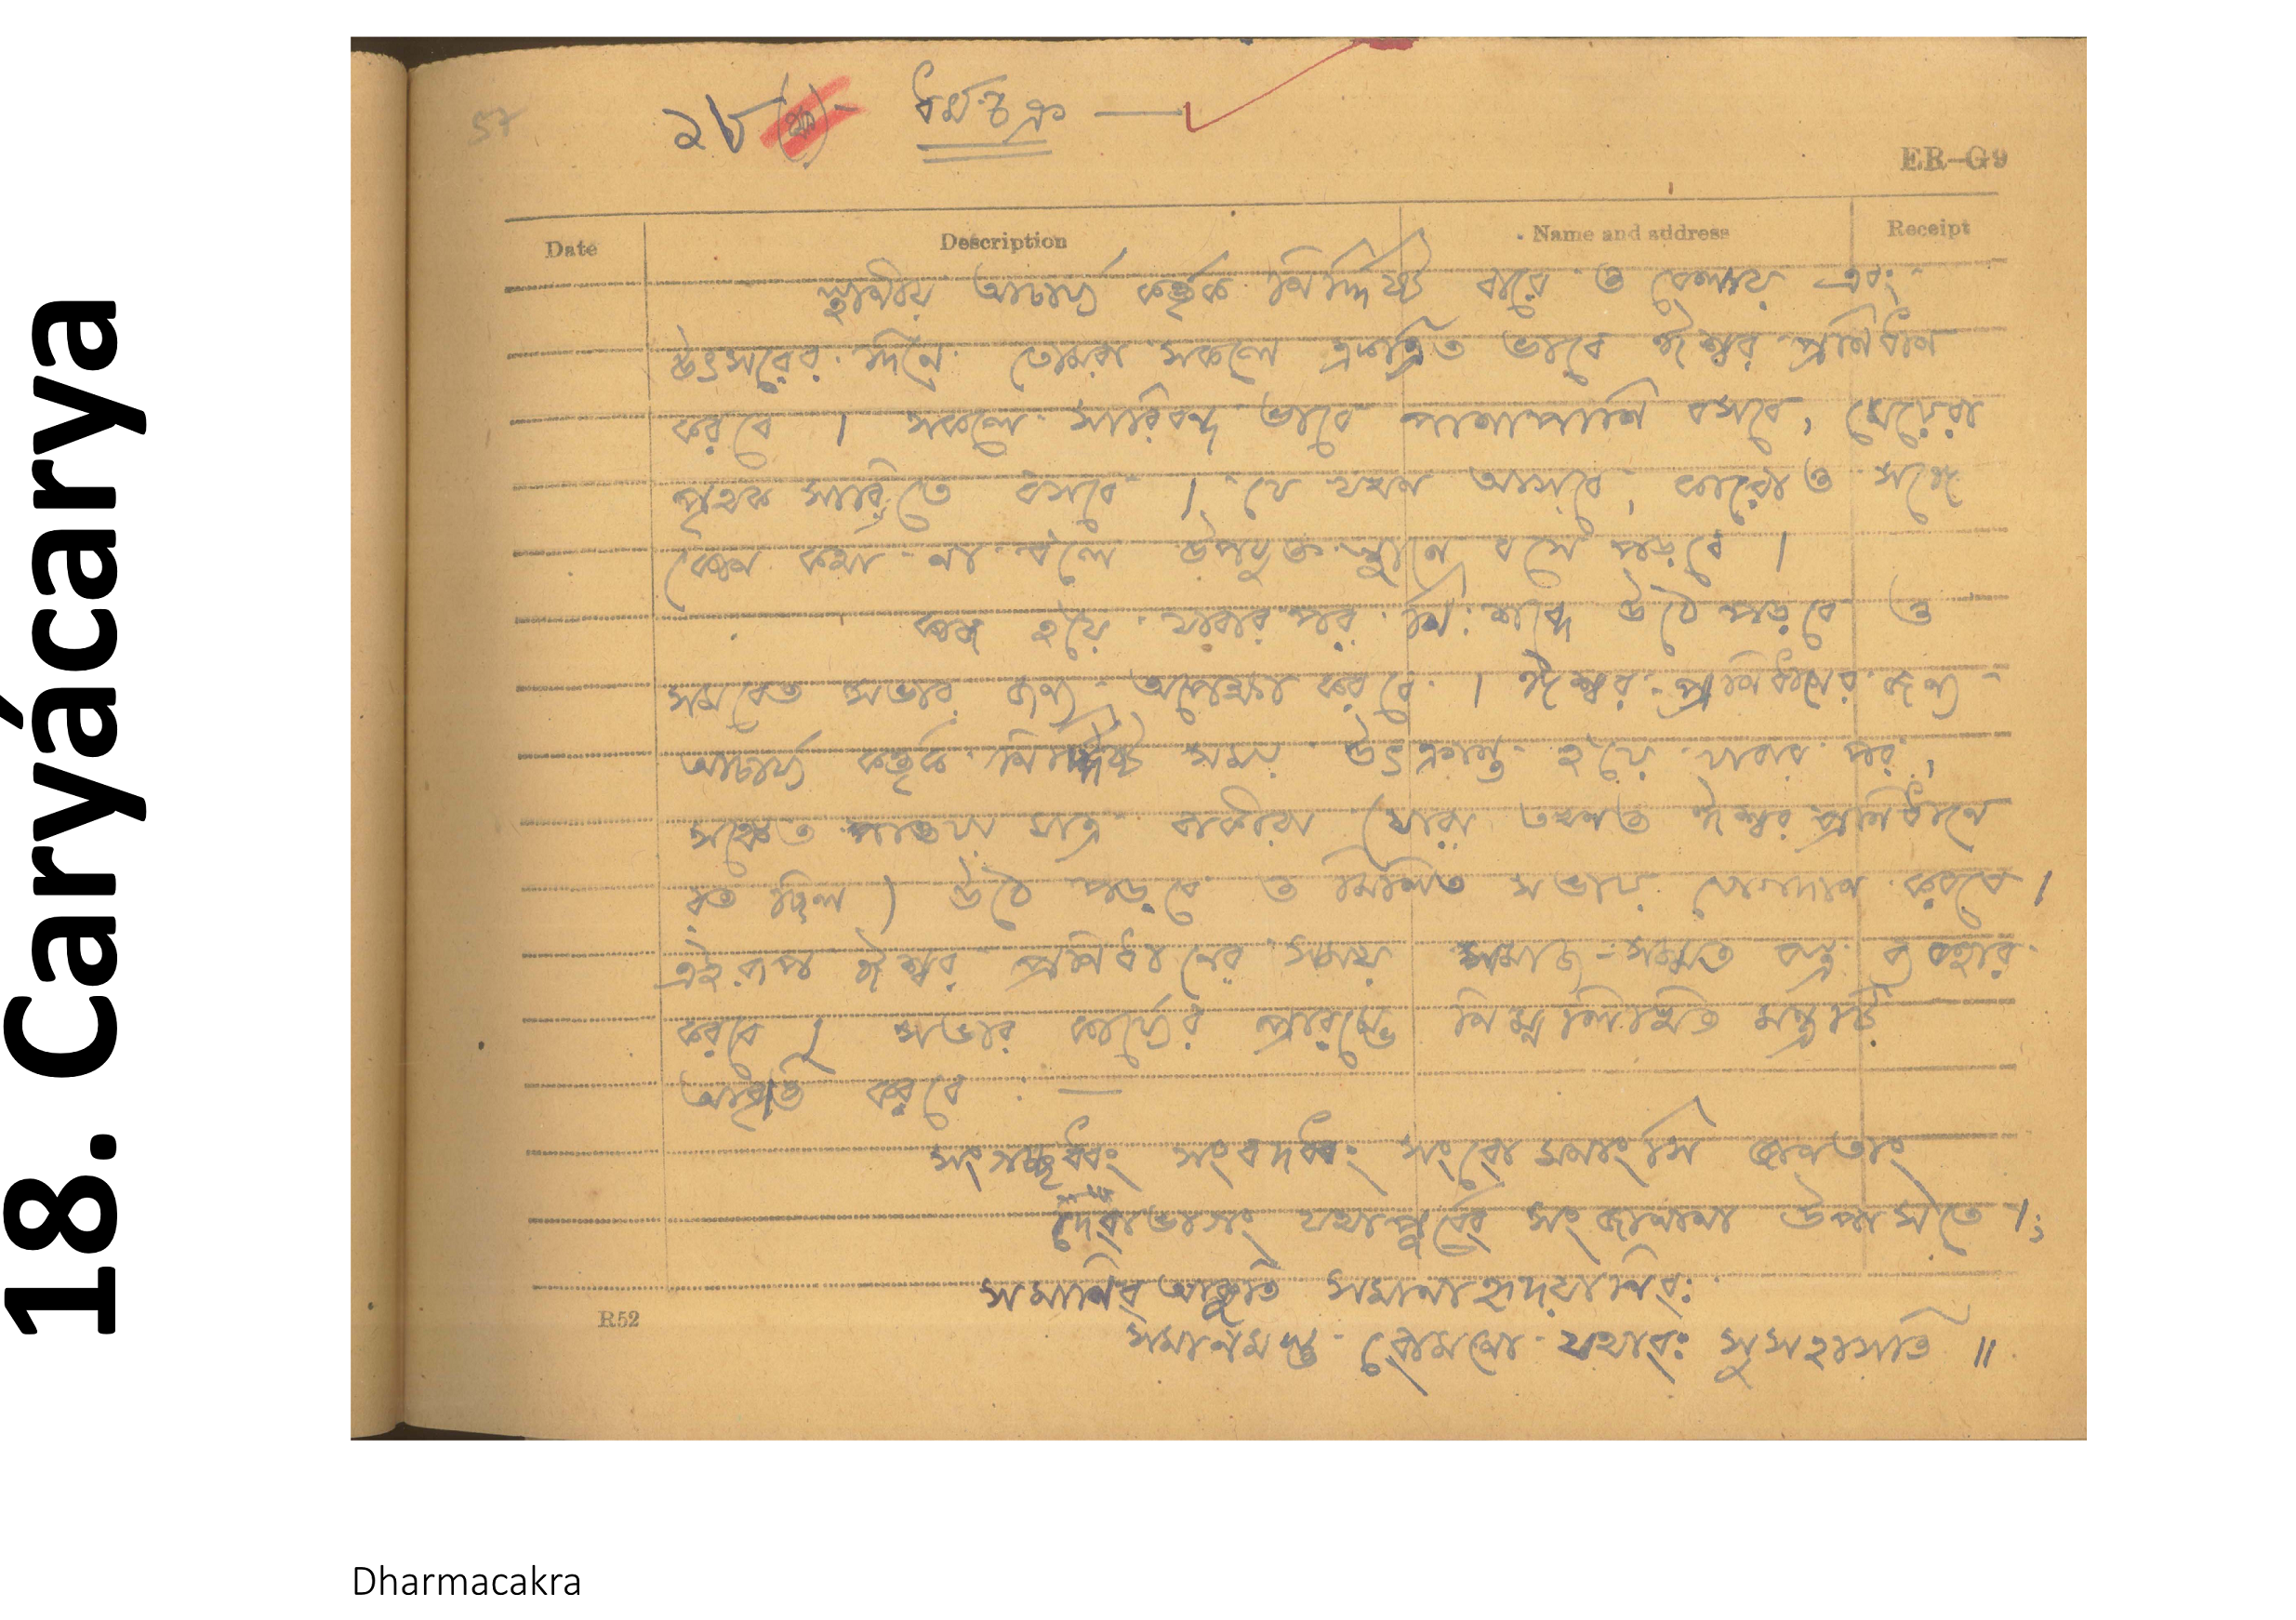 18. Caryácarya
57
২৮ (ক) - ধর্মচক্র —
ER—G9
Date Description Name and address Receipt
স্থানীয় আচার্য্য কর্ত্তৃক নির্দ্দিষ্ট বারে ও বেলায় এবং
উৎসবের দিনে তোমরা সকলে একত্রিত ভাবে ঈশ্বর প্রনিধান
করবে । সকলে সারিবদ্ধ ভাবে পাশাপাশি বসবে, মেয়েরা
পৃথক সারিতে বসবে । যে যখন আসবে, কারোও সঙ্গে
কোন কথা না ব'লে উপযুক্ত স্থানে বসে পড়বে ।
কাজ হ'য়ে যাবার পর নিঃশব্দে উঠে পড়বে ও
সমবেত সভার জন্য অপেক্ষা করবে । ঈশ্বর প্রনিধানের জন্য
আচার্য্য কর্ত্তৃক নির্দ্দিষ্ট সময় উৎক্রান্ত হ'য়ে যাবার পর,
সঙ্কেত পাওয়া মাত্র বাকীরা (যারা তখনও ঈশ্বর প্রনিধানে
রত ছিল) উঠে পড়বে ও মিলিত সভায় যোগদান করবে ।
এইরূপ ঈশ্বর প্রনিধানের সময় সমাজ-সম্মত বস্ত্র ব্যবহার
করবে । সভার কার্য্যের প্রারম্ভে নিম্নলিখিত মন্ত্রটি
আবৃত্তি করবে : —
সংগচ্ছধ্বং সংবদধ্বং সংবো মনাংসি জানতাং
দেবাভাগং যথাপূর্ব্বে সংজানানা উপাসতে ।;
সমানিব আকুতি সমানাহৃদয়ানিবঃ
সমানমস্তু বোমনো যথাবঃ সুসহাসতি ॥
R52
Dharmacakra